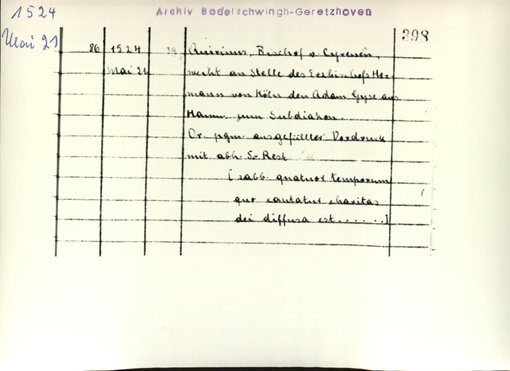 1524
Mai 21
Archiv Bodelschwingh-Geretzhoven
398
86 1524 Quirinus, Bischof v. Cyrenen,
Mai 21 weiht an Stelle des Erzbischofs Her-
mann von Köln den Adam Gyse aus
Hamm zum Subdiakon.
Or. pgm. ausgefüllter Vordruck
mit abh. S-Rest
[sabb. quatuor temporum
quo cantatur charitas
dei diffusa est......]